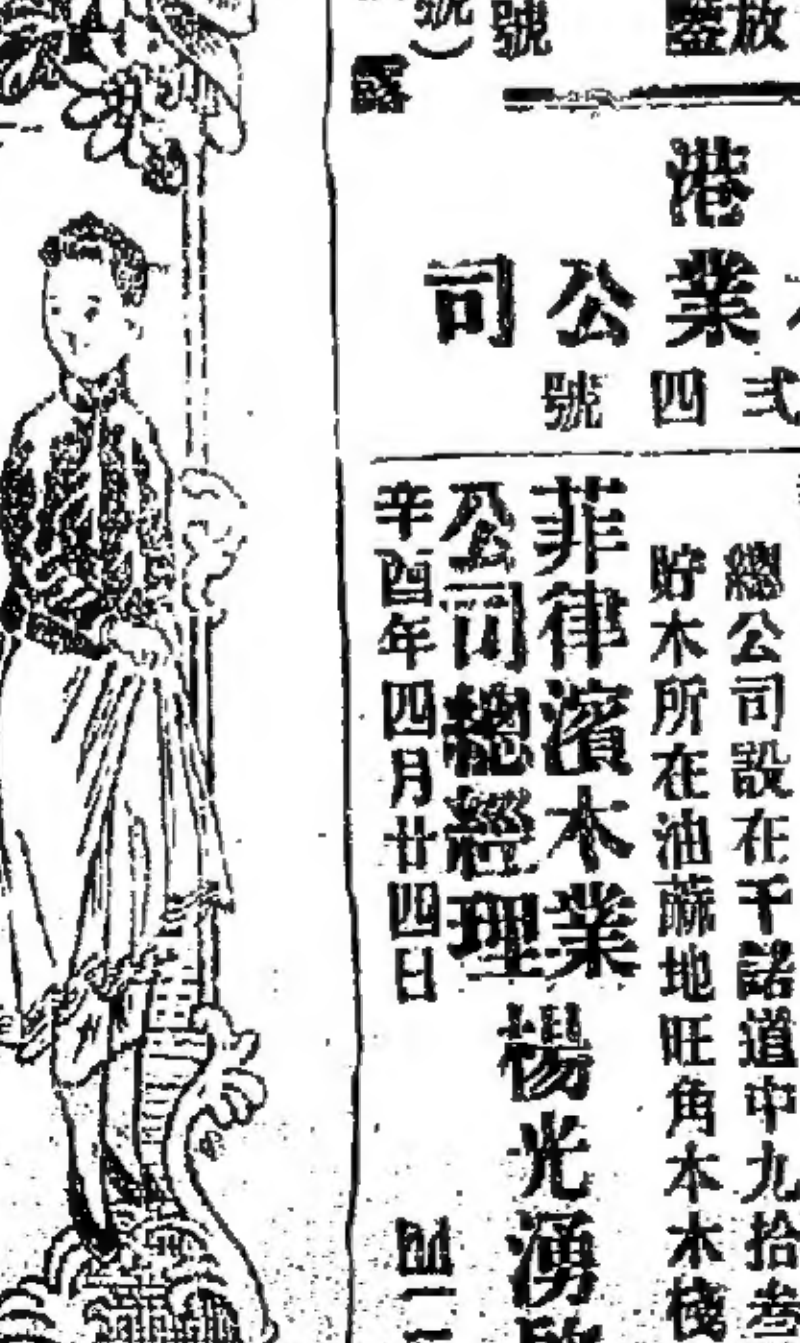 放
盤
號
號）
啓
港
業公司
弍四號
總公司設在干諾道中九拾叁
貯木所在油蔴地旺角本木棧
菲律濱木業
公司總經理
楊光湧
辛酉年四月廿四日